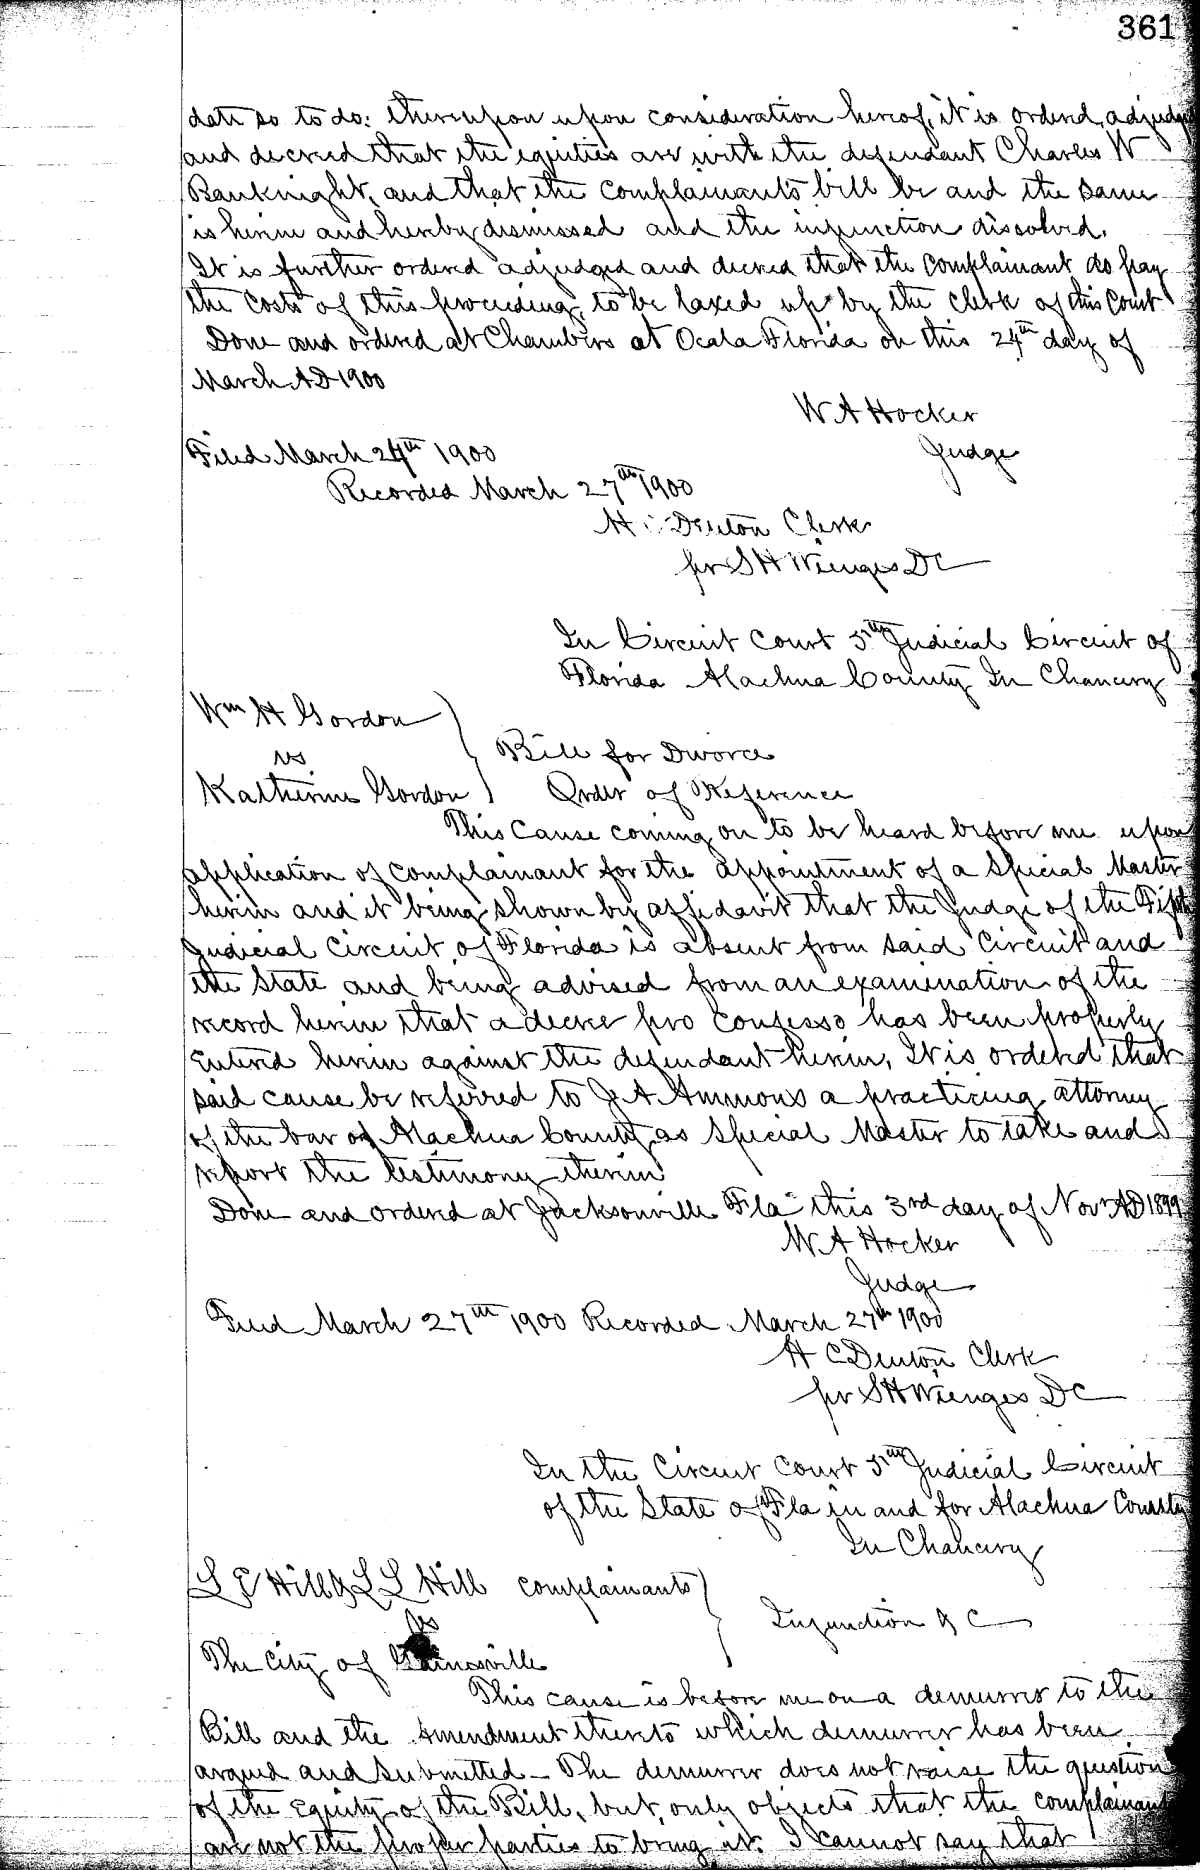 361
date so to do: thereupon upon consideration hereof, it is ordered, adjudged
and decreed that the equities are with the defendant Charles W
Bauknight, and that the complainants bill be and the same
is herein and hereby dismissed and the injunction dissolved.
It is further ordered adjudged and decreed that the complainant do pay
the costs of this proceeding, to be taxed up by the clerk of this Court
Done and ordered at Chambers at Ocala Florida on this 24th day of
March AD 1900
W A Hocker
Judge
Filed March 24th 1900
Recorded March 27th 1900
H C Denton Clerk
pr S H Wienges DC
In Circuit Court 5th Judicial Circuit of
Florida Alachua County In Chancery
Wm H Gordon
vs
Bill for Divorce
Katherine Gordon Order of Reference
This Cause coming on to be heard before me upon
application of complainant for the appointment of a Special Master
herein and it being shown by affidavit that the Judge of the Fifth
Judicial Circuit of Florida is absent from said Circuit and
the State and being advised from an examination of the
record herein that a decree pro confesso has been properly
entered herein against the defendant herein, It is ordered that
said cause be referred to J A Ammons a practicing attorney
of the bar of Alachua County as Special Master to take and
report the testimony therein
Done and ordered at Jacksonville Fla this 3rd day of Nov AD 1899
W A Hocker
Judge
Filed March 27th 1900 Recorded March 27th 1900
H C Denton Clerk
pr S H Wienges DC
In the Circuit Court 5th Judicial Circuit
of the State of Fla in and for Alachua County
In Chancery
L C Hill & L L Hill complainants
vs
Injunction & C
The City of Gainesville
This cause is before me on a demurrer to the
Bill and the Amendment thereto which demurrer has been
argued and submitted - The demurrer does not raise the question
of the Equity of the Bill, but only objects that the complainants
are not the proper parties to bring it. I cannot say that